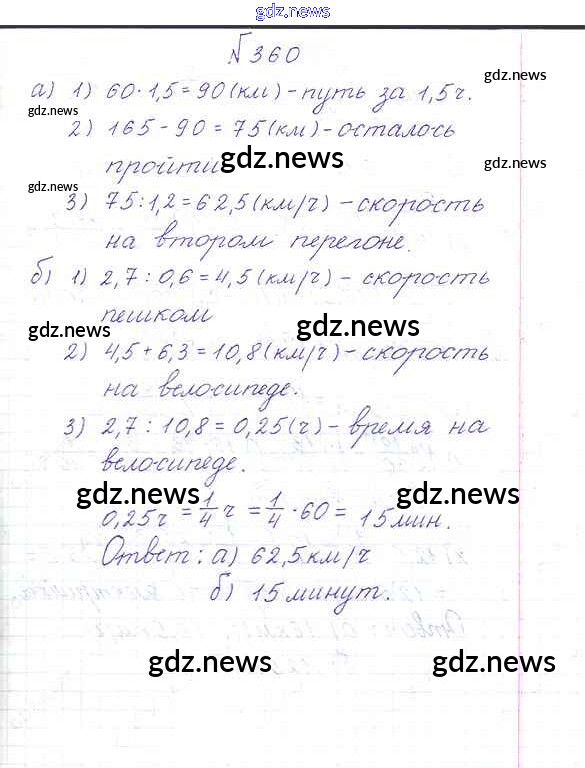 gdz.news
№360
gdz.news
а) 1) 60·1,5=90(км)-путь за 1,5ч.
gdz.news
2) 165-90=75(км)-осталось
пройти
gdz.news
gdz.news
gdz.news
3) 75:1,2=62,5(км/ч)-скорость
на втором перегоне.
б) 1) 2,7:0,6=4,5(км/ч)-скорость
пешком
gdz.news
gdz.news
2) 4,5+6,3=10,8(км/ч)-скорость
на велосипеде.
3) 2,7:10,8=0,25(ч)-время на
велосипеде.
gdz.news
gdz.news
0,25ч=1/4ч=1/4·60=15мин.
Ответ: а) 62,5км/ч
б) 15минут.
gdz.news
gdz.news